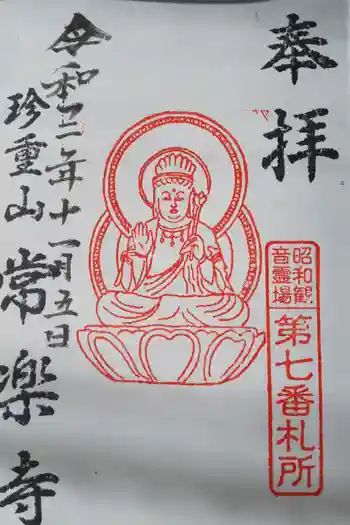 奉拝
昭和観
音霊場
第七番札所
令和二年十一月五日
珍重山
常楽寺